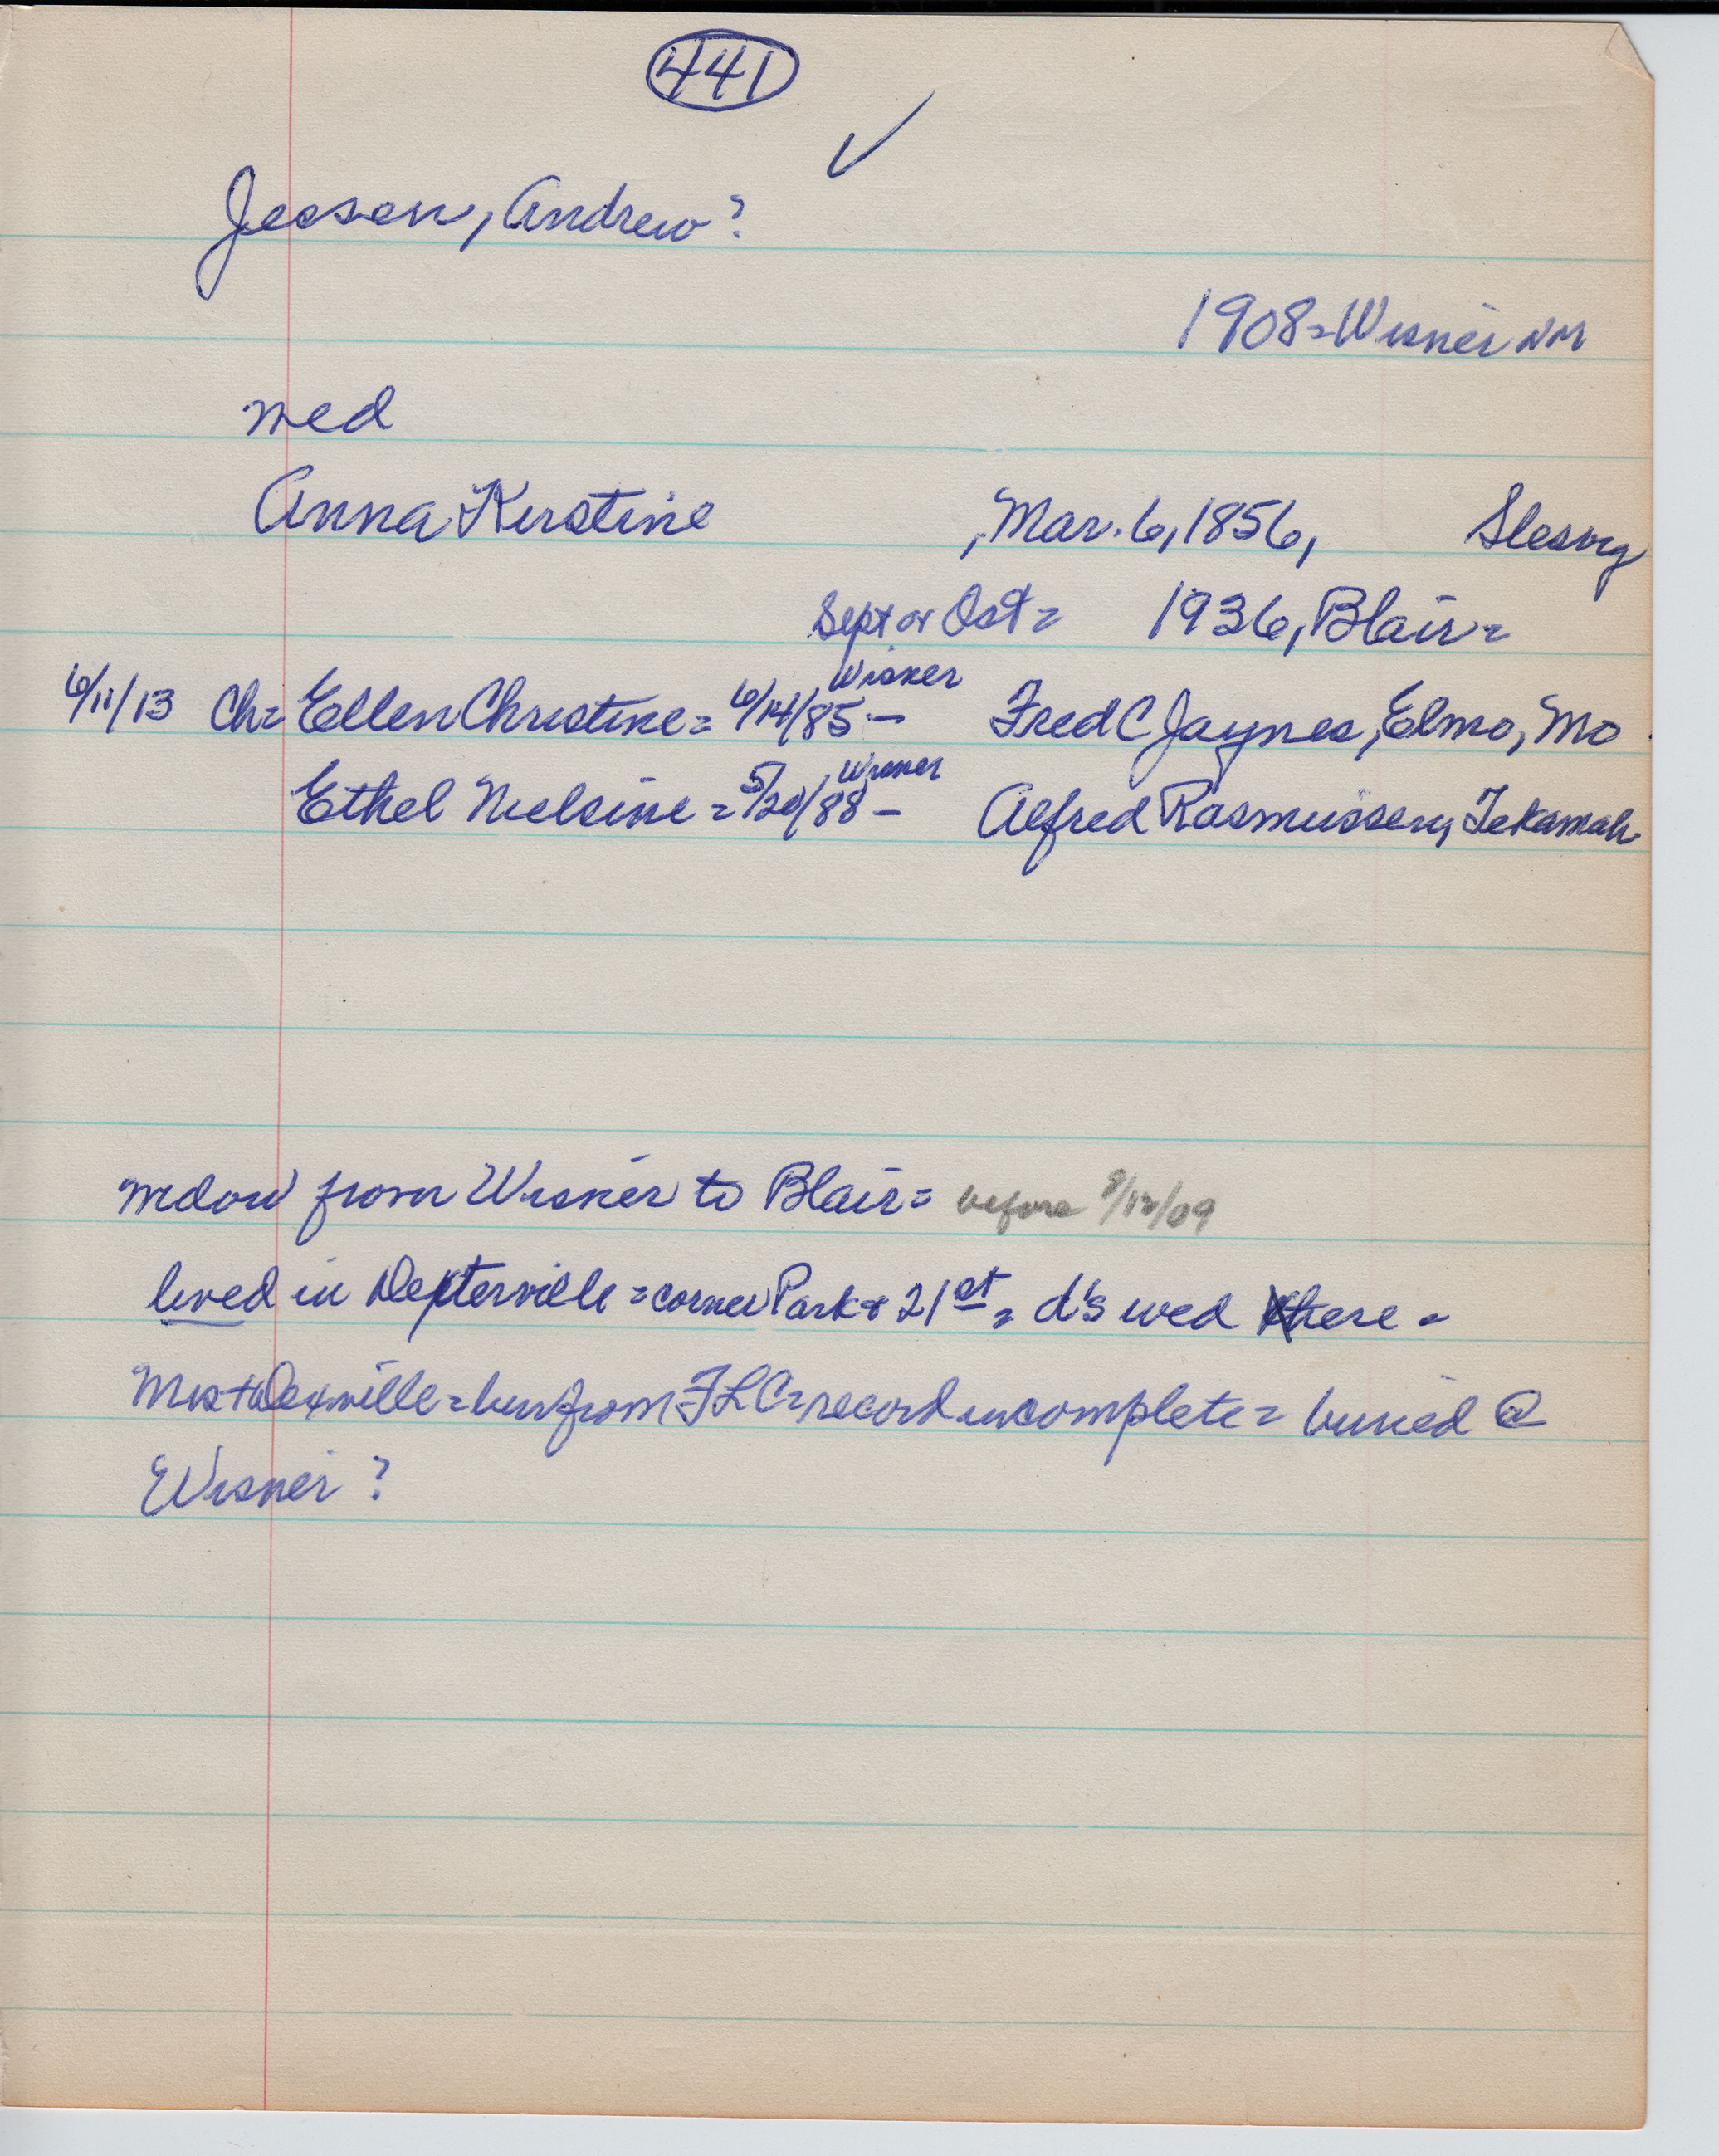 441
✓
Jessen, Andrew?
1908 = Wisner NM
med
Anna Kirstine , Mar. 6, 1856, Slesvig
Sept or Oct = 1936, Blair =
Wisner
6/11/13 Ch = Ellen Christine = 6/14/85 — Fred C Jaynes, Elmo, Mo
, Wisner
Ethel Nielsine = 5/20/88 — Alfred Rasmussen, Tekamah
widow from Wisner to Blair = before 9/12/09
lived in Dexterville = corner Park & 21st = d's wed here =
= bur from FLC = record incomplete = buried @
Wisner?